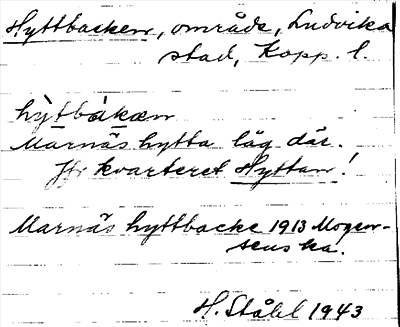 Hyttbacken, område, Ludvika
stad, Kopp. l.
hỳtbàkæn
Marnäs hytta låg där.
Jfr kvarteret Hyttan!
Marnäs hyttbacke 1913 Mogen-
senska.
H. Ståhl 1943